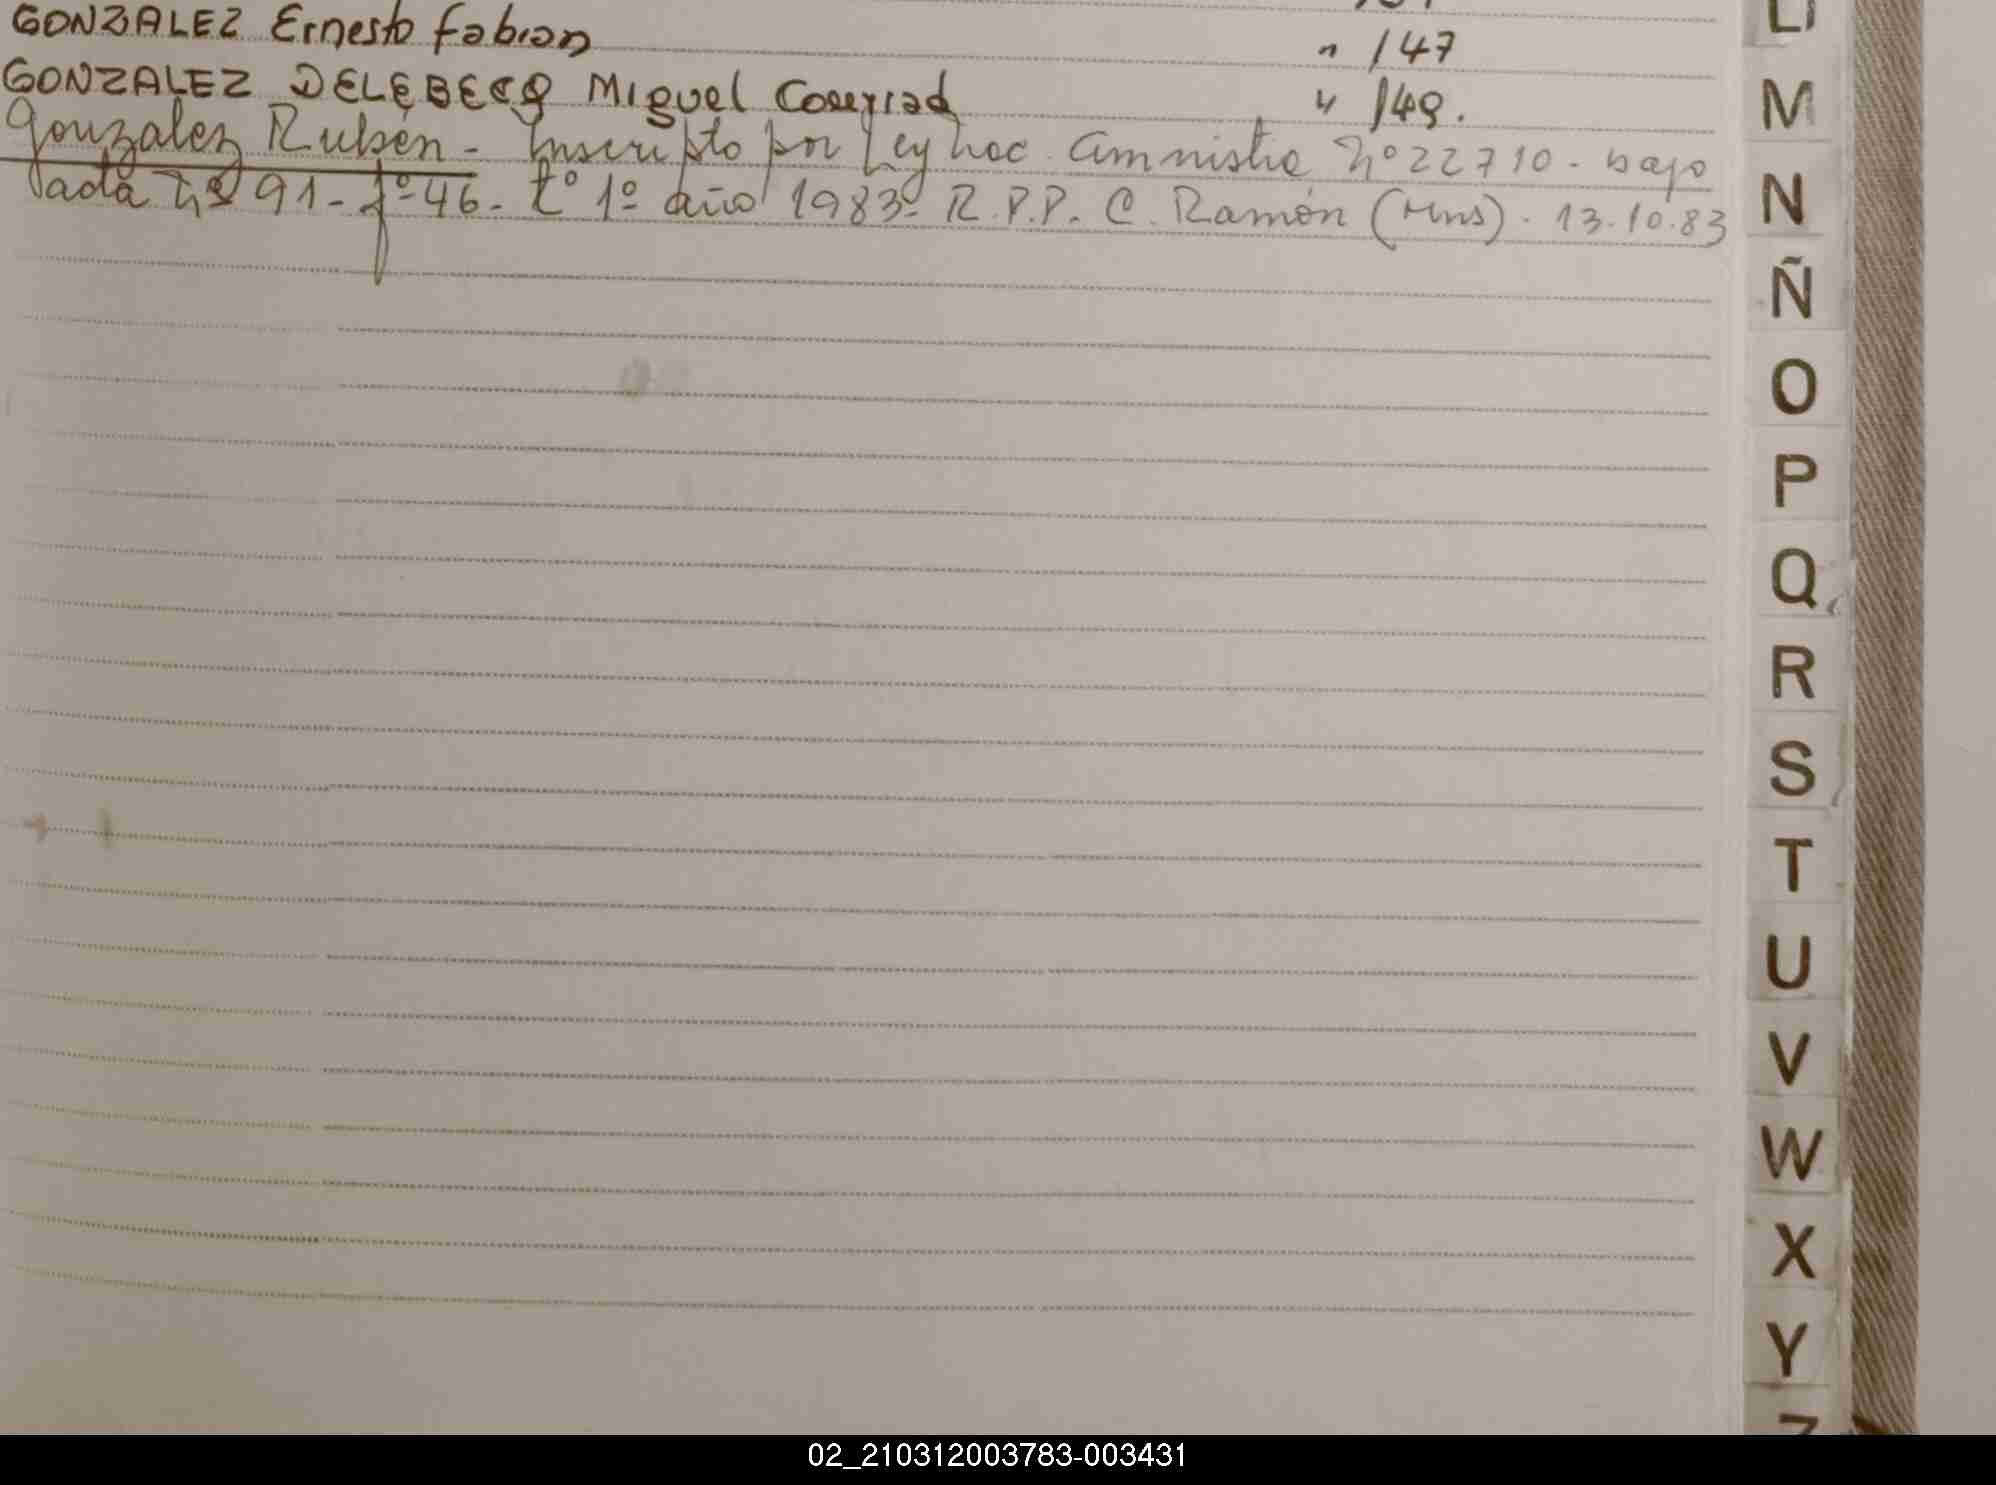 GONZALEZ Ernesto Fabian " /47
GONZALEZ DELEBECQ Miguel " /49.
Gonzalez Rubén - Inscripto por Ley Nac. Amnistia Nº 22710 - bajo
acta Nº 91 - fº 46 - tº 1º año 1983 - R.P.P. C. Ramón (Mns). 13.10.83
LL
M
N
Ñ
O
P
Q
R
S
T
U
V
W
X
Y
Z
02_210312003783-003431